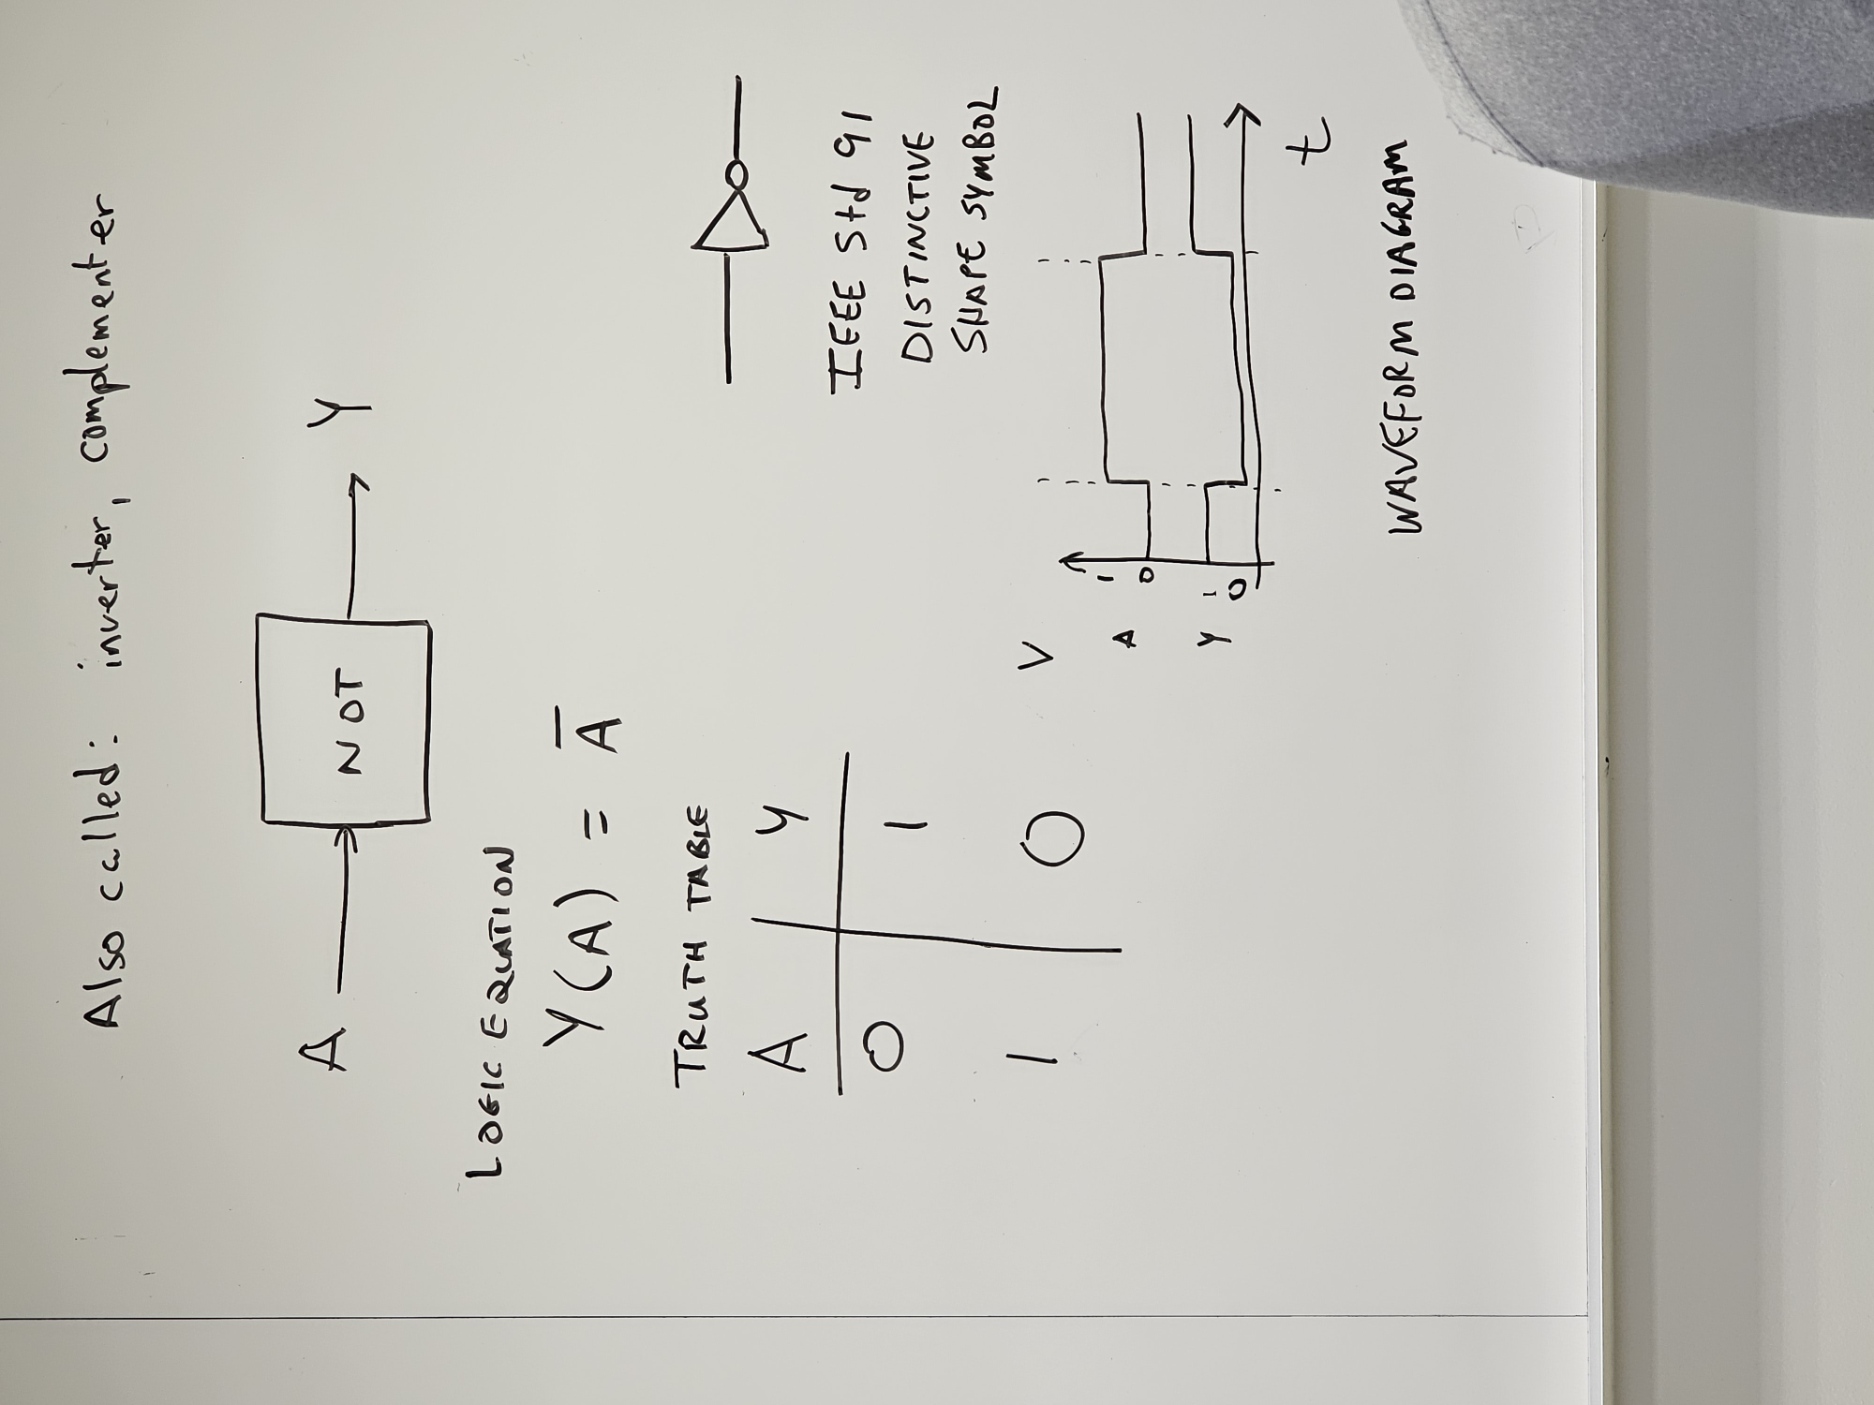 Also called: inverter, complementer
A NOT Y
LOGIC EQUATION
Y(A) = A̅
TRUTH TABLE
A Y
0 1
1 0
IEEE Std 91
DISTINCTIVE
SHAPE SYMBOL
V
1
A 0
Y 1
0
t
WAVEFORM DIAGRAM